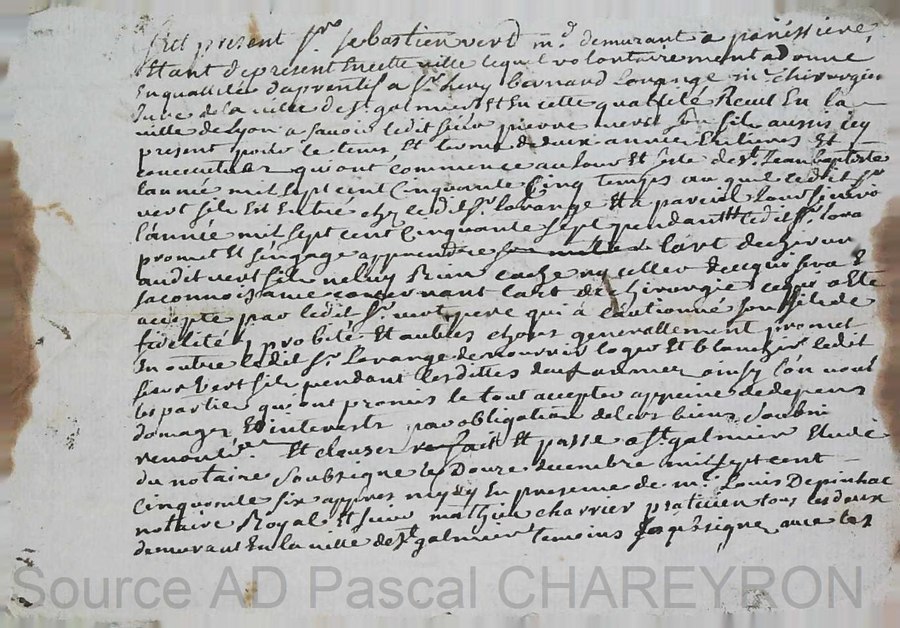 fut present Sr. Sebastien vert md. demurant a panissiere,
Etant de present En cette ville lequel volontairement a donné
En quallité d'aprentif a Sr. henry bernard Lorange me. chirurgien
Juré de la ville de St. galmier Et En cette quallité Recul En la
ville de Lyon a savoir ledit sieur pierre vert son fils aussis icy
present pour le tems Et terme de deux année Entieres Et
consecutives qui ont commencé au jour Et feste de St. Jean baptiste
l'année mil sept cent Cinquante Cinq temps au quel ledit Sr.
vert fils Est Entré chez ledit Sr. Lorange Et a pareil jour finira
l'année mil sept cent Cinquante sept pendant ledit Sr. Lora
promet Et s'engage apprendre l'art de chirur
audit vert fils ne luy Rien cacher ny celler de ce qui sera
sa connoissance concernant l'art de chirurgie ce qui a Eté
accepté par ledit Sr. vert pere qui a cautionné son fils de
fidelité, probité Et autres choses generallement promet
En outre ledit Sr. Lorange de nourrir loger Et blanchir ledit
sieur Vert fils pendant lesdittes deux années ainsy l'on voulu
les parties qui ont promis le tout accepter appeine de depens
domages Et interests par obligation de leurs biens Soubmi
renonté.on Et clauses fait Et passé a St. galmier Etude
du notaire Soubsigné le Douze decembre mil sept cent
Cinquante six appres mydy En presence de me. Louis Depinhac
notaire Royal Et sieur mathieu charrier praticien tous les deux
demurant En la ville de St. galmier temoins Soubsigné avec les
Source AD Pascal CHAREYRON